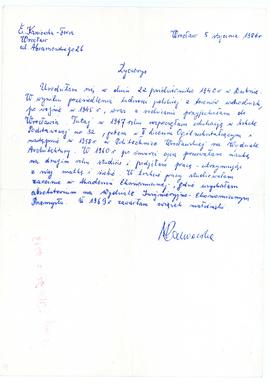 Wrocław 5 stycznia 1986r
Wrocław
ul. Abramowskiego 26
Życiorys
Urodziłam się w dniu 22 października 1940r w
W wyniku przesiedlenia ludności polskiej z terenów wschodnich
po wojnie w 1945r, wraz z rodzicami przyjechałam do
Wrocławia. Tutaj w 1947 roku rozpoczęłam edukację w Szkole
Podstawowej nr 32, potem w I Liceum Ogólnokształcącym i
następnie w 1958r w Politechnice Wrocławskiej na Wydziale
Architektury. W 1960r po śmierci ojca przerwałam naukę
na drugim roku studiów i podjęłam pracę
z niej matkę i siebie. W trakcie pracy studiowałam
zaocznie w Akademii Ekonomicznej, gdzie uzyskałam
absolutorium na Wydziale Inżynieryjno-Ekonomicznym
Przemysłu. W 1969r zawarłam związek małżeński